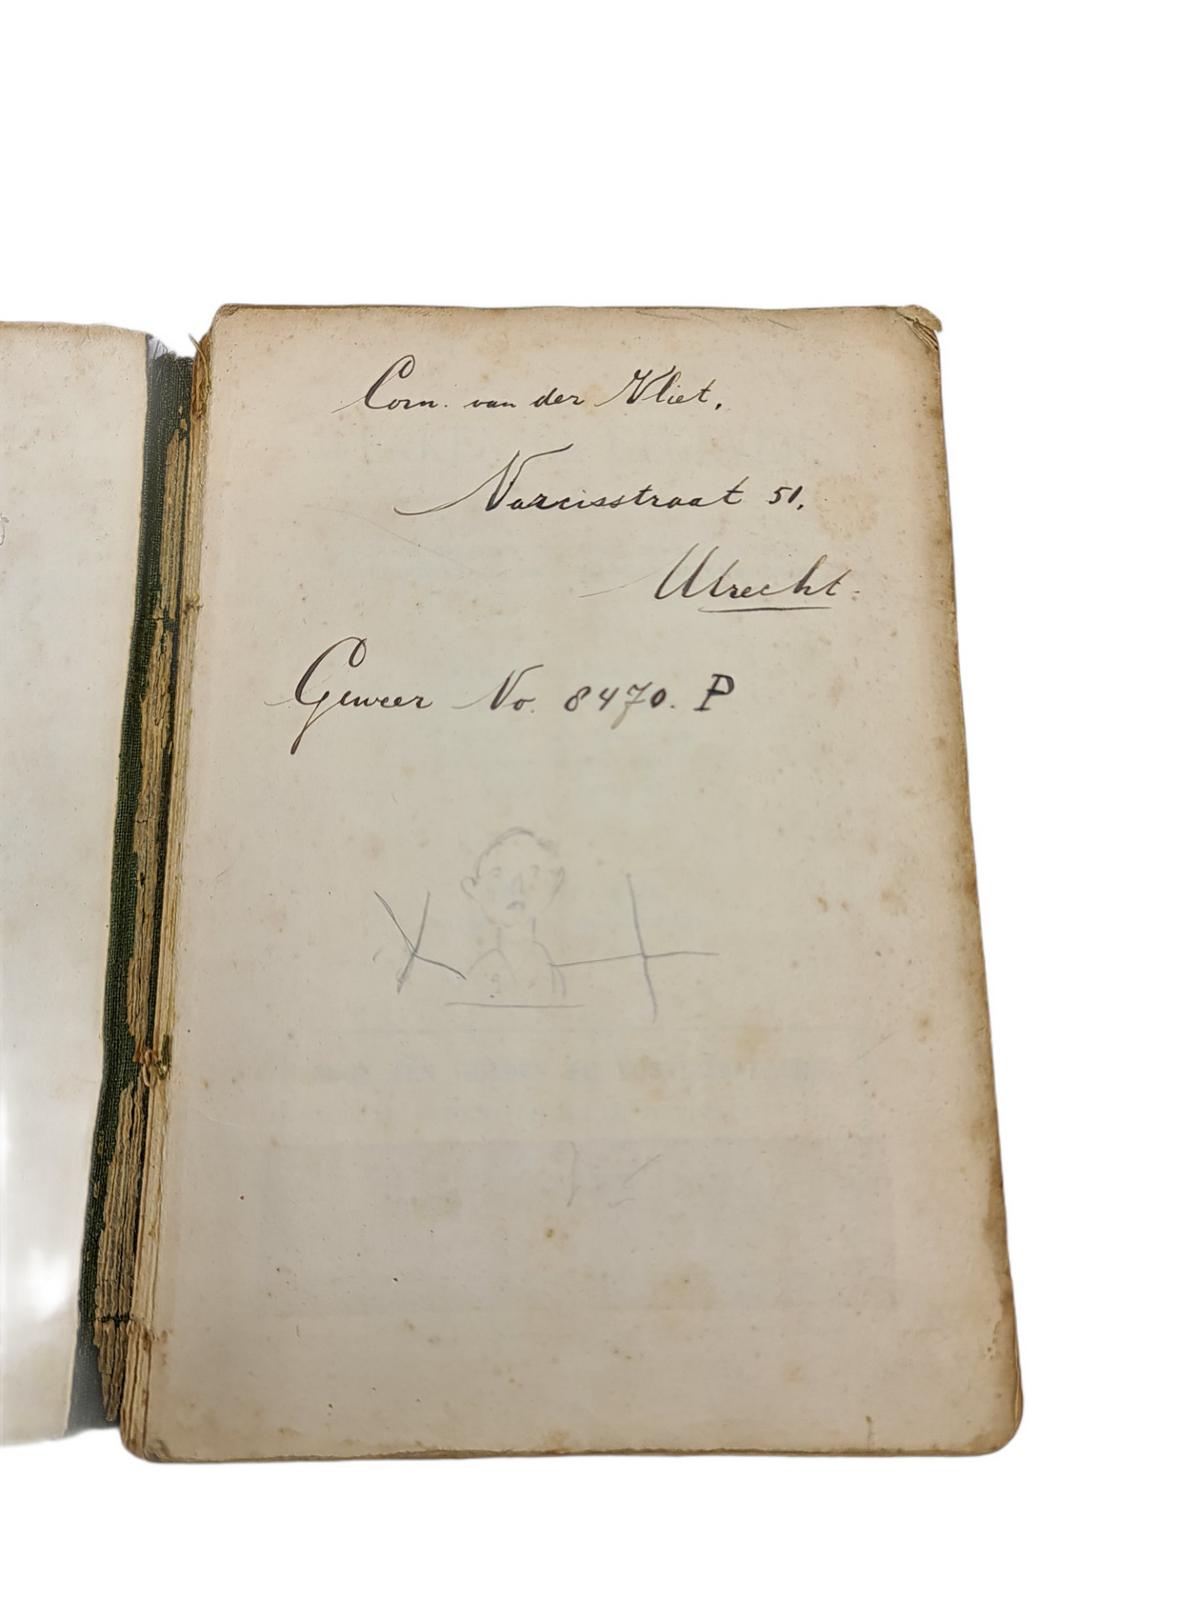 Corn. van der Vliet,
Narcisstraat 51,
Utrecht.
Geweer No. 8470. P